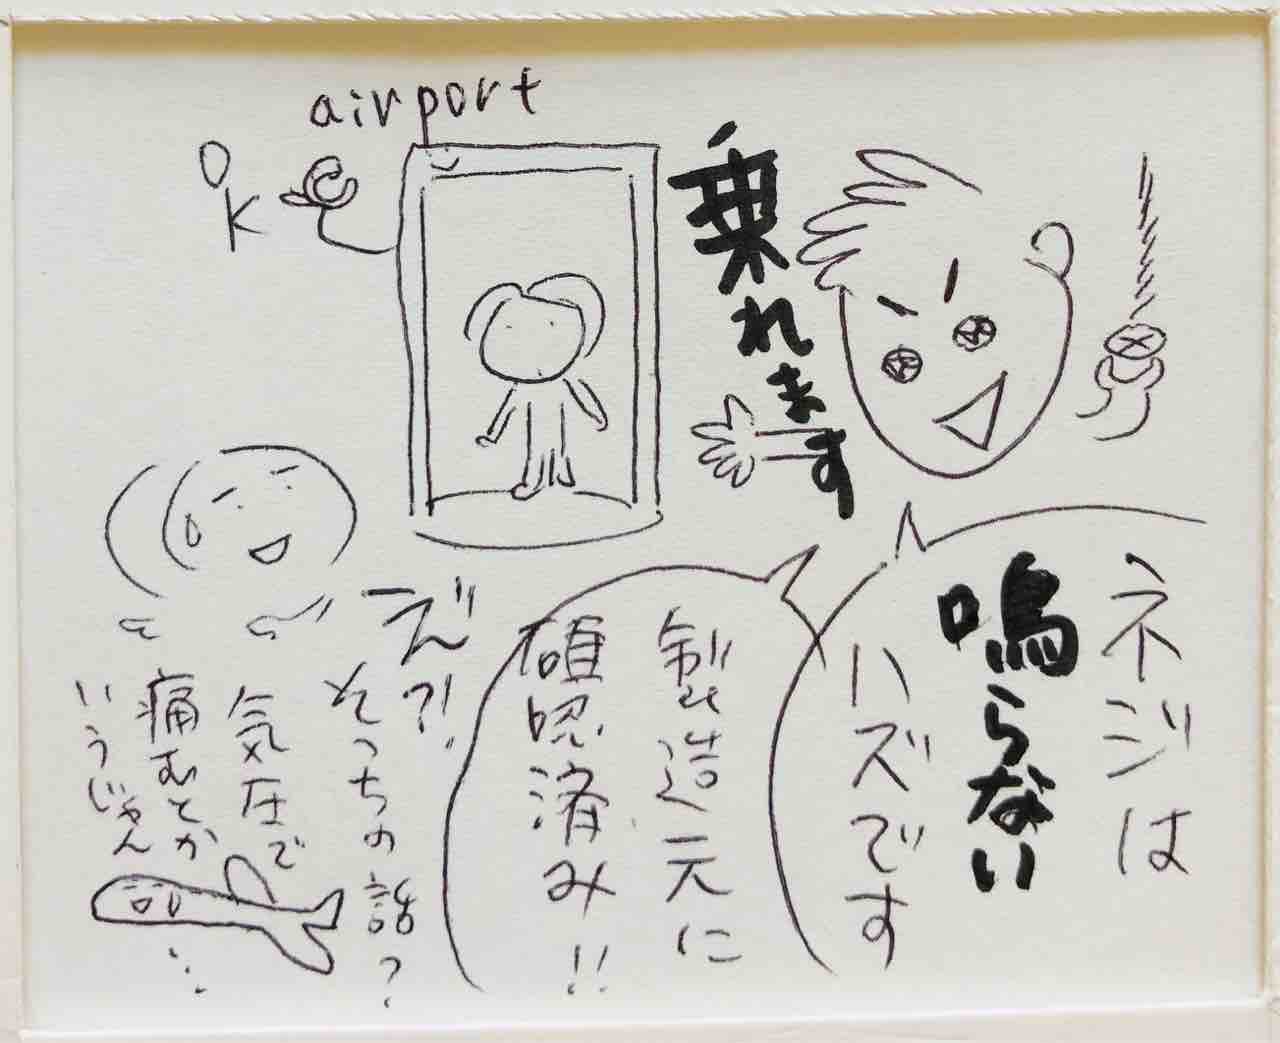 airport
OK
乗れます
ネジは
鳴らない
ハズです
製造元に
確認済み!!
えっ?!
そっちの話?
気圧で
痛むとか
いうじゃん